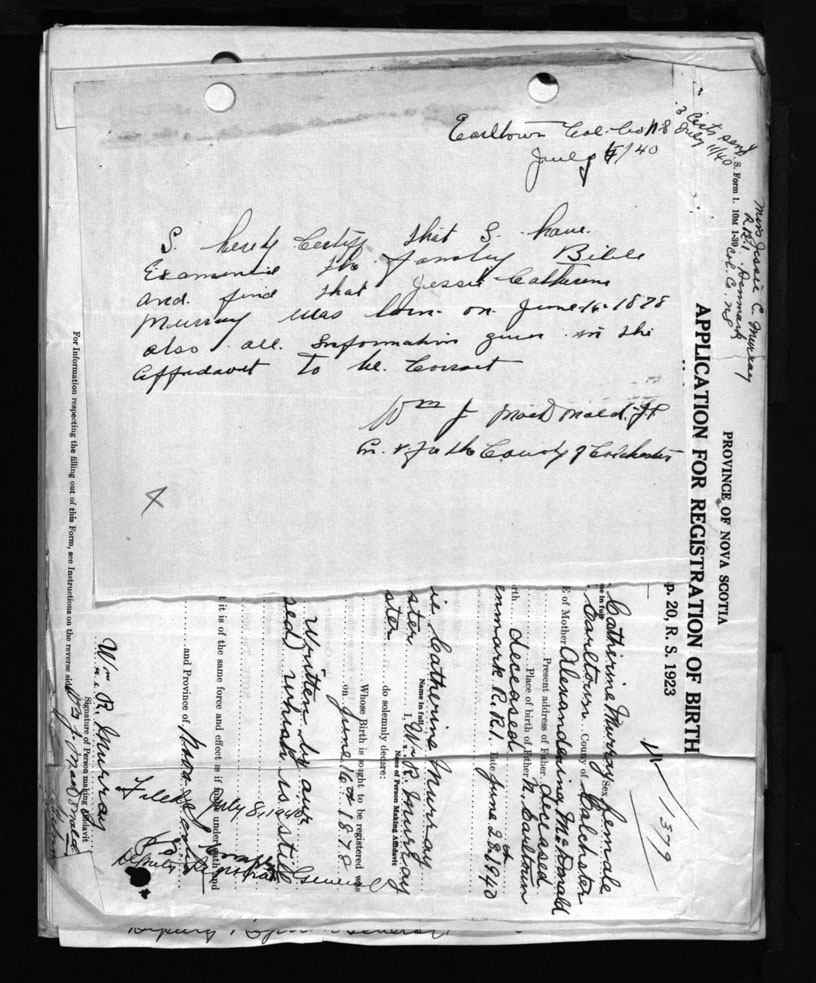 Earltown Col. Co N.S
July /40
I. hereby Certify that I. have.
Examined the family Bible
and find that Jessie Catherine
Murray was born on June 16- 1878
also all. Information given in the
affadavit to be. Correct
Wm J MacDonald. J.P.
for the County of Colchester
3 Certs sent
July 11/40
S. Form 1. 10M 1-39
Miss Jessie C. Murray
R.R.1 Denmark
Col. Co. N.S.
PROVINCE OF NOVA SCOTIA
APPLICATION FOR REGISTRATION OF BIRTH
p. 20, R. S. 1923
1379
Catherine Murray Sex female
Earltown County of Colchester
E of Mother Alexanderina McDonald
Present address of Father deceased
Place of birth of Father N. Earltown
deceased
enmark R.R.1. Date June 28th 1940
ie Catherine Murray
Name in full
ster
I, Wm R. Murray
Name of Person Making Affidavit
ster
do solemnly declare:
Whose Birth is sought to be registered was
on June 16th 1878
Written by our
sed) which is still
it is of the same force and effect as if made under oath and
and Province of Nova Scotia
Filed July 8, 1940
Deputy Registrar General
Wm R. Murray
Signature of Person making Affidavit
Wm J. MacDonald
For Information respecting the filling out of this Form, see Instructions on the reverse side
Deputy General